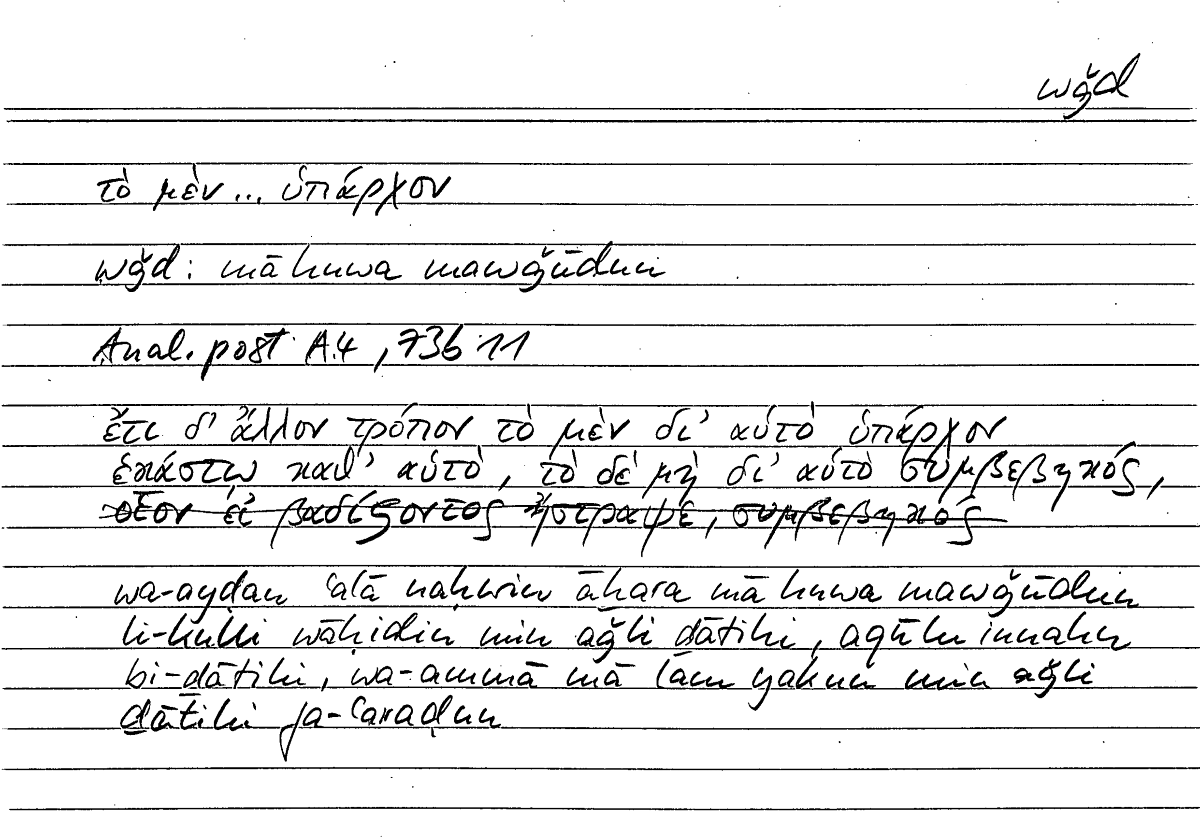 wǧd
τὸ μὲν... ὑπάρχον
wǧd: mā huwa mawǧūdun
Anal. post A.4, 73b11
ἔτι δ' ἄλλον τρόπον τὸ μὲν δι' αὑτὸ ὑπάρχον
ἑκάστῳ καθ' αὑτὸ, τὸ δὲ μὴ δι' αὑτὸ συμβεβηκός,
οἷον εἰ βαδίζοντος ἤστραψε, συμβεβηκός
wa-ayḍan ʿalā naḥwin āḫara mā huwa mawǧūdun
li-kulli wāḥidin min aǧli ḏātihi, aqūlu innahu
bi-ḏātihi, wa-ammā mā lam yakun min aǧli
ḏātihi fa-ʿaraḍun